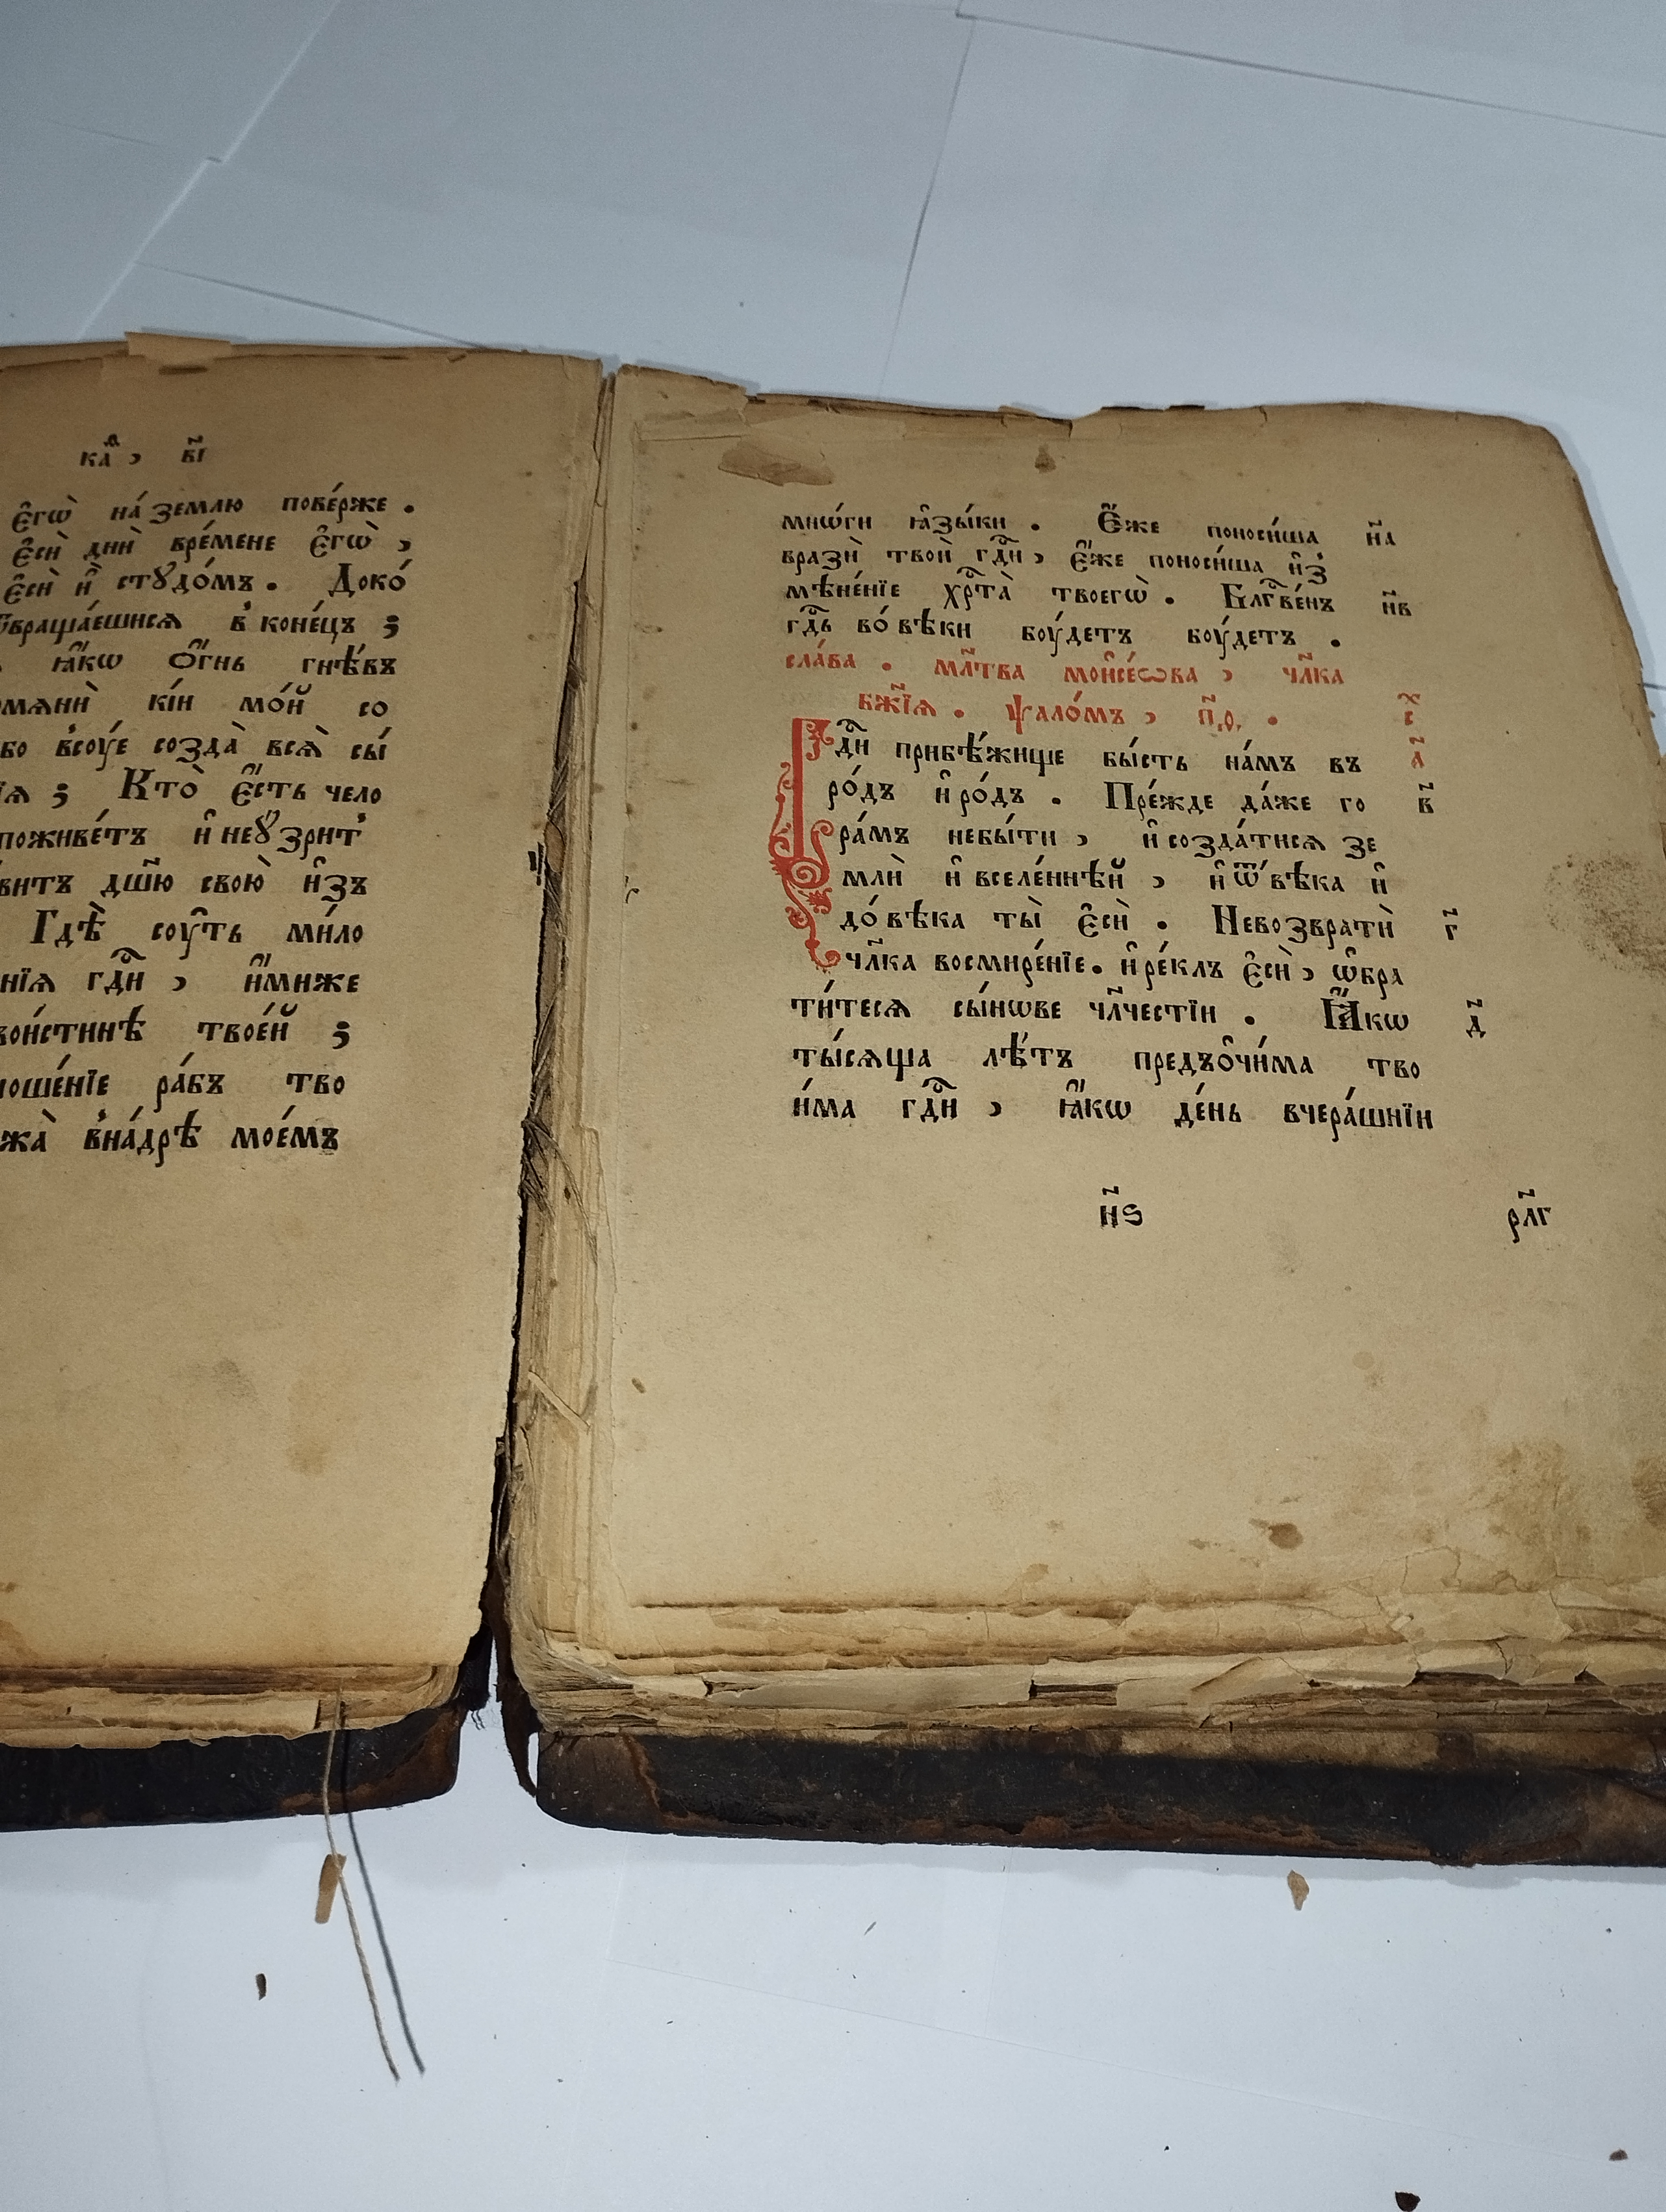 ка҃ , в҃і
є҆гѡ̀ на́ землю пове́рже .
є҆сѝ днѝ вре́мене є҆гѡ̀ ,
є҆сѝ и҆̀ стꙋдо́мъ . Доко́
ѿвраща́ешисѧ в̾ коне́цъ ;
ꙗ҆́кѡ ѻ҆́гнь гнѣ́въ
помѧнѝ кі́и мо́й со
бо всоу́е созда̀ всѧ̀ сы́
ія ; Кто̀ є҆́сть чело
поживе́тъ и҆ неꙋ҆́зрит̾
витъ дш҃ю свою̀ и҆́зъ
Гдѣ̀ соу́ть ми́ло
нїѧ гдⷭ҇и , и҆́миже
вои́стиннѣ твое́й ;
ноше́нїе ра́бъ тво
жа̀ в̾на́дрѣ мое́мъ
мнѡ́ги ꙗ҆зы́ки . Є҆́же поноси́ша н҃а
вразѝ твоѝ гдⷭ҇и , є҆́же поноси́ша и҆з̾
мѣне́нїе хрⷭ҇та̀ твоегѡ̀ . Блгⷭ҇ве́нъ н҃в
гдⷭ҇ь во́ вѣки боу́детъ боу́детъ .
сла́ва . мл҃тва мои҆се́ѡва , чл҃ка
бж҃їѧ . ѱало́мъ , п҃,ѳ, .
Гдⷭ҇и прибѣ́жище бы́сть на́мъ въ а҃
ро́дъ и҆ ро́дъ . Пре́жде да́же го в҃
ра́мъ небы́ти , и҆ созда́тисѧ зе
млѝ и҆ вселе́ннѣй , и҆ ѿ вѣка и҆
до́ вѣка ты̀ є҆сѝ . Невозвратѝ г҃
чл҃ка восмире́нїе . и҆ ре́клъ є҆сѝ , ѡ҆бра
ти́тесѧ сы́нѡве чл҃честїи . Ꙗ҆́кѡ д҃
ты́сѧща лѣ́тъ предъѻ҆чи́ма тво
и́ма гдⷭ҇и , ꙗ҆́кѡ де́нь вчера́шнїи
н҃ѕ рл҃г